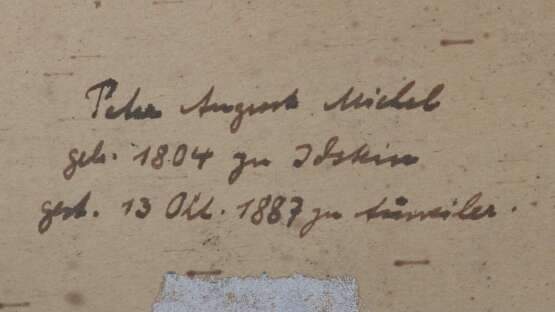 Peter August Michel
geb. 1804 zu Idstein
gest. 13 Okt. 1887 zu